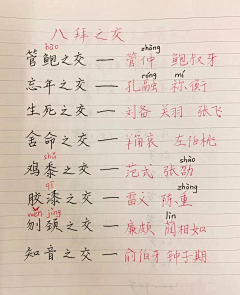 八拜之交
bào zhòng
管鲍之交 — 管仲 鲍叔牙
róng mí
忘年之交 — 孔融 祢衡
生死之交 — 刘备 关羽 张飞
舍命之交 — 羊角哀 左伯桃
shǔ shào
鸡黍之交 — 范式 张劭
qī zhòng
胶漆之交 — 雷义 陈重
wěn jǐng lìn
刎颈之交 — 廉颇 蔺相如
知音之交 — 俞伯牙 钟子期